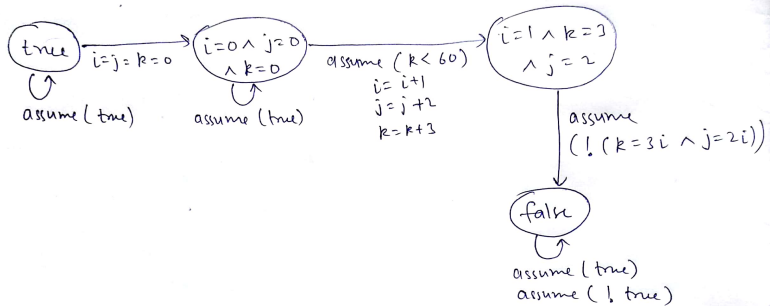 true
i=j=k=0
assume (true)
i=0 ∧ j=0
∧ k=0
assume (true)
assume (k<60)
i= i+1
j=j+2
k=k+3
i=1 ∧ k=3
∧ j=2
assume
(! (k=3i ∧ j=2i))
false
assume (true)
assume (! true)